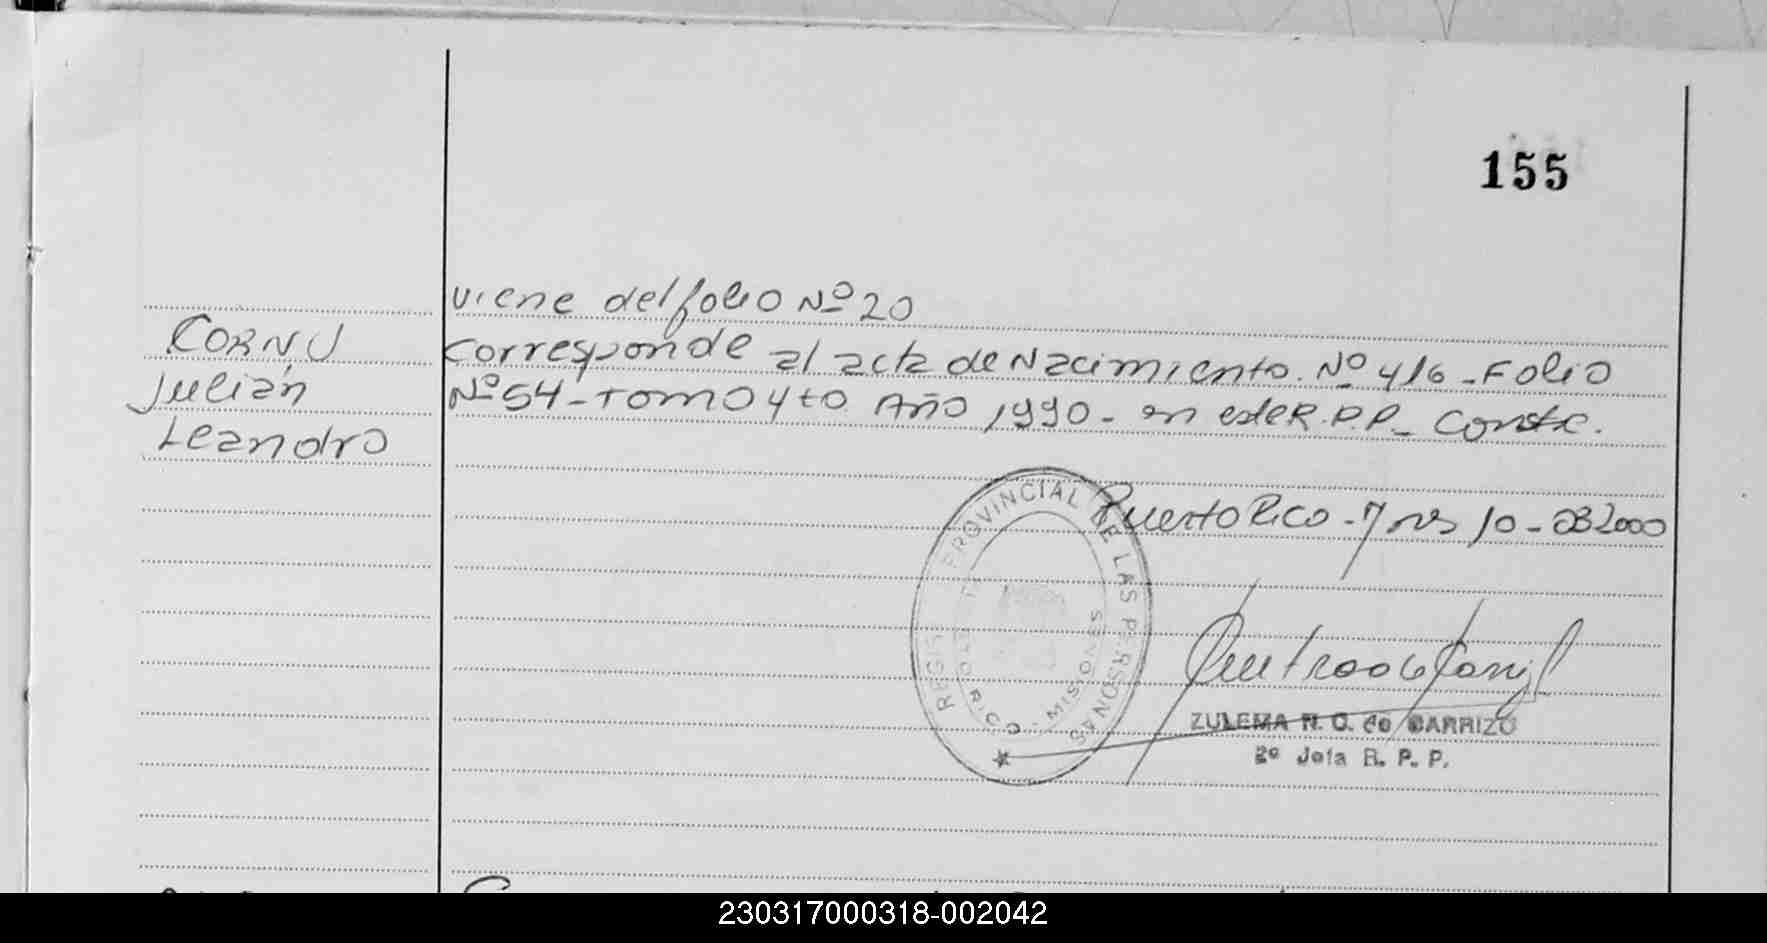 155
viene del folio Nº 20
CORNU
Julián
Leandro
corresponde al acta de Nacimiento. Nº 416 - Folio
Nº 54 - Tomo 4to Año 1990 - en este R.P.P - Conste.
Puerto Rico - Mnes 10 - 2000
REGISTRO PROVINCIAL DE LAS PERSONAS
RICO - MISIONES
ZULEMA N. C. de CARRIZO
2º Jefa R. P. P.
230317000318-002042